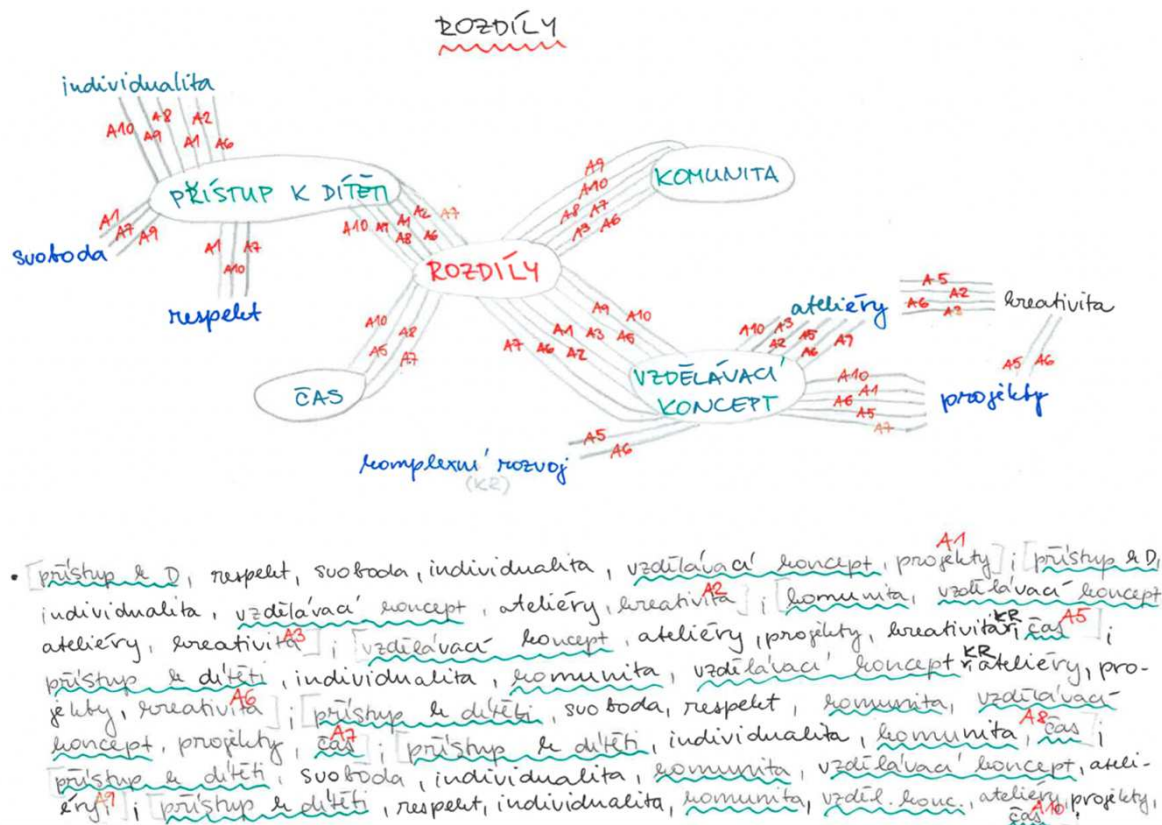 ROZDÍLY
individualita
A10 A9 A8 A1 A2 A6
PŘÍSTUP K DÍTĚTI
A1 A7 A9
svoboda
A1 A10 A7
respekt
A10 A9 A1 A8 A2 A6 A7
ROZDÍLY
A9
A10
A8 A7
A3 A6
KOMUNITA
A10 A8
A5 A7
ČAS
A9 A10
A1 A3 A5
A7 A6 A2
VZDĚLÁVACÍ
KONCEPT
A10 A3 A2 A5 A6 A9
ateliéry
A5
A6 A2
A3
kreativita
A5 A6
A10
A1
A6
A5
A7
projekty
A5
A6
komplexní rozvoj
(KR)
• [přístup k D, respekt, svoboda, individualita, vzdělávací koncept, projekty] A1 ; [přístup k D,
individualita, vzdělávací koncept, ateliéry, kreativita] A2 ; [komunita, vzdělávací koncept
ateliéry, kreativita] A3 ; [vzdělávací koncept, ateliéry, projekty, kreativita, KR, čas] A5 ;
přístup k dítěti, individualita, komunita, vzdělávací koncept, KR, ateliéry, pro-
jekty, kreativita] A6 ; [přístup k dítěti, svoboda, respekt, komunita, vzdělávací
koncept, projekty, čas] A7 ; [přístup k dítěti, individualita, komunita, čas] A8 ;
[přístup k dítěti, svoboda, individualita, komunita, vzdělávací koncept, ateli-
éry] A9 ; [přístup k dítěti, respekt, individualita, komunita, vzděl. konc., ateliéry, projekty,
čas] A10